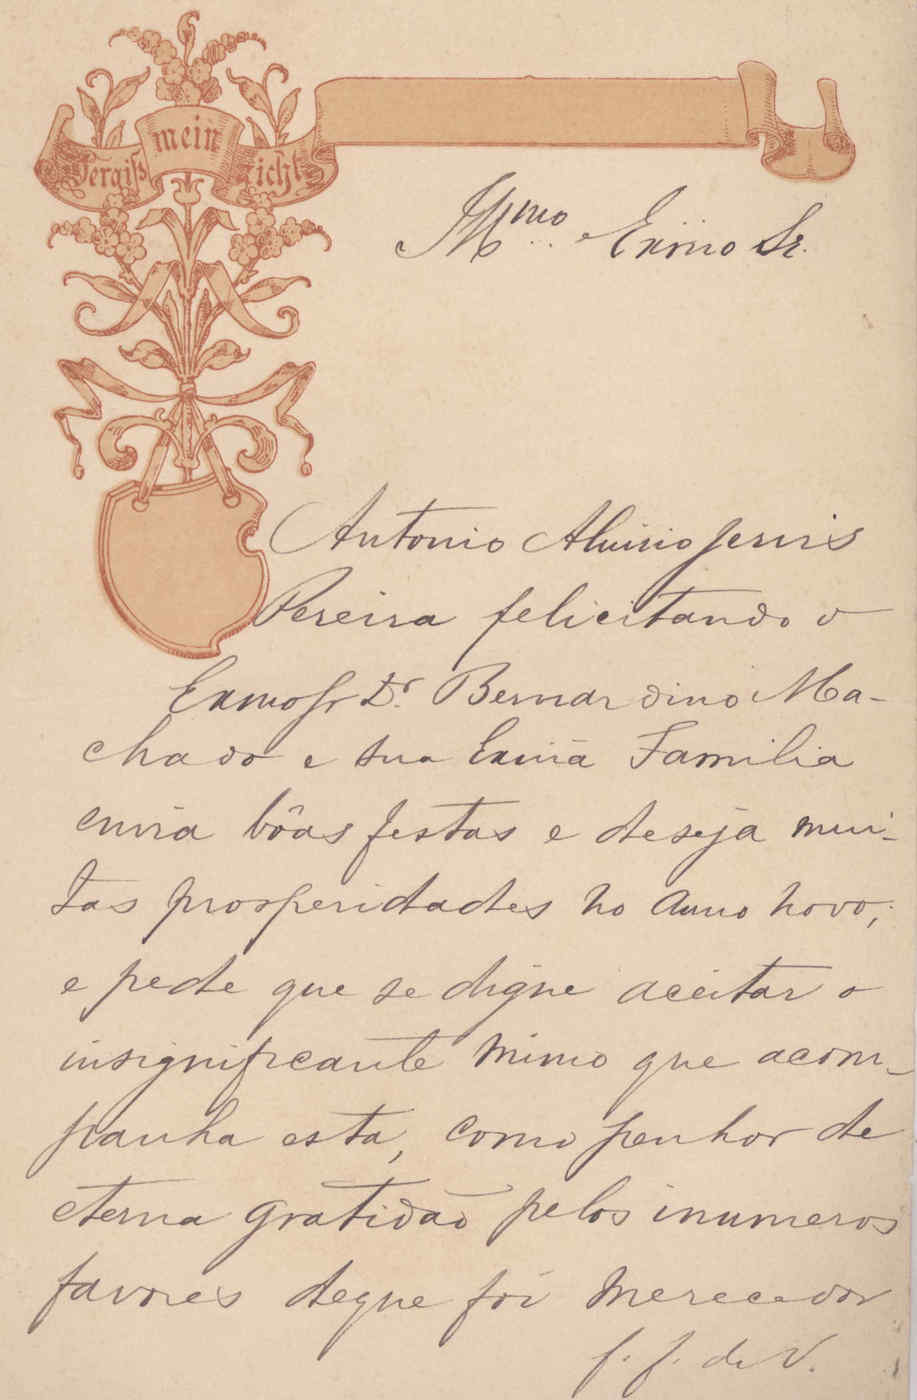 Vergiß mein nicht
Illmo e Exmo Sr.
Antonio Aluisio Jervis
Pereira felicitando o
Exmo Sr Dr. Bernardino Ma-
chado e sua Exmã Familia
envia bôas festas e deseja mui-
tas prosperidades no Anno novo,
e pede que se digne aceitar o
insignificante mimo que acom-
panha esta, como penhor de
eterna gratidão pelos inumeros
favores deque foi merecedor